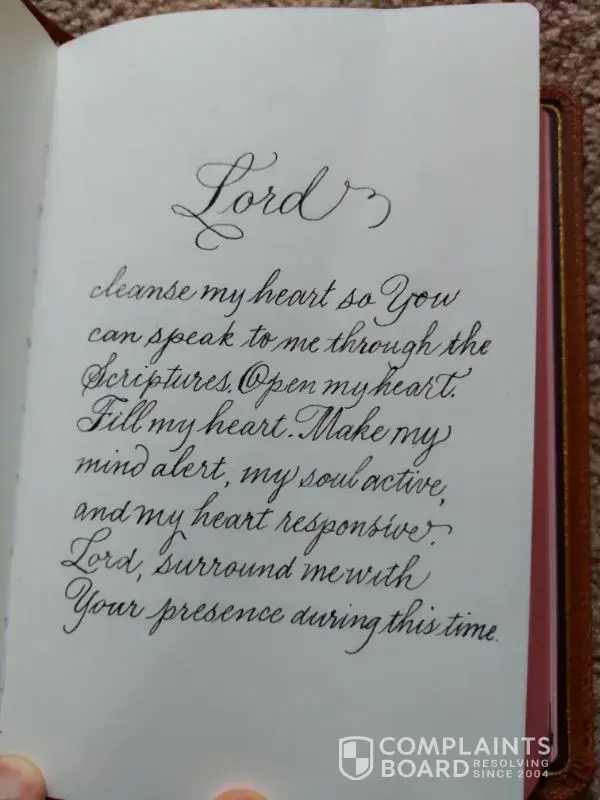 Lord
cleanse my heart so You
can speak to me through the
Scriptures. Open my heart.
Fill my heart. Make my
mind alert, my soul active,
and my heart responsive.
Lord, surround me with
Your presence during this time.
COMPLAINTS
BOARD RESOLVING
SINCE 2004